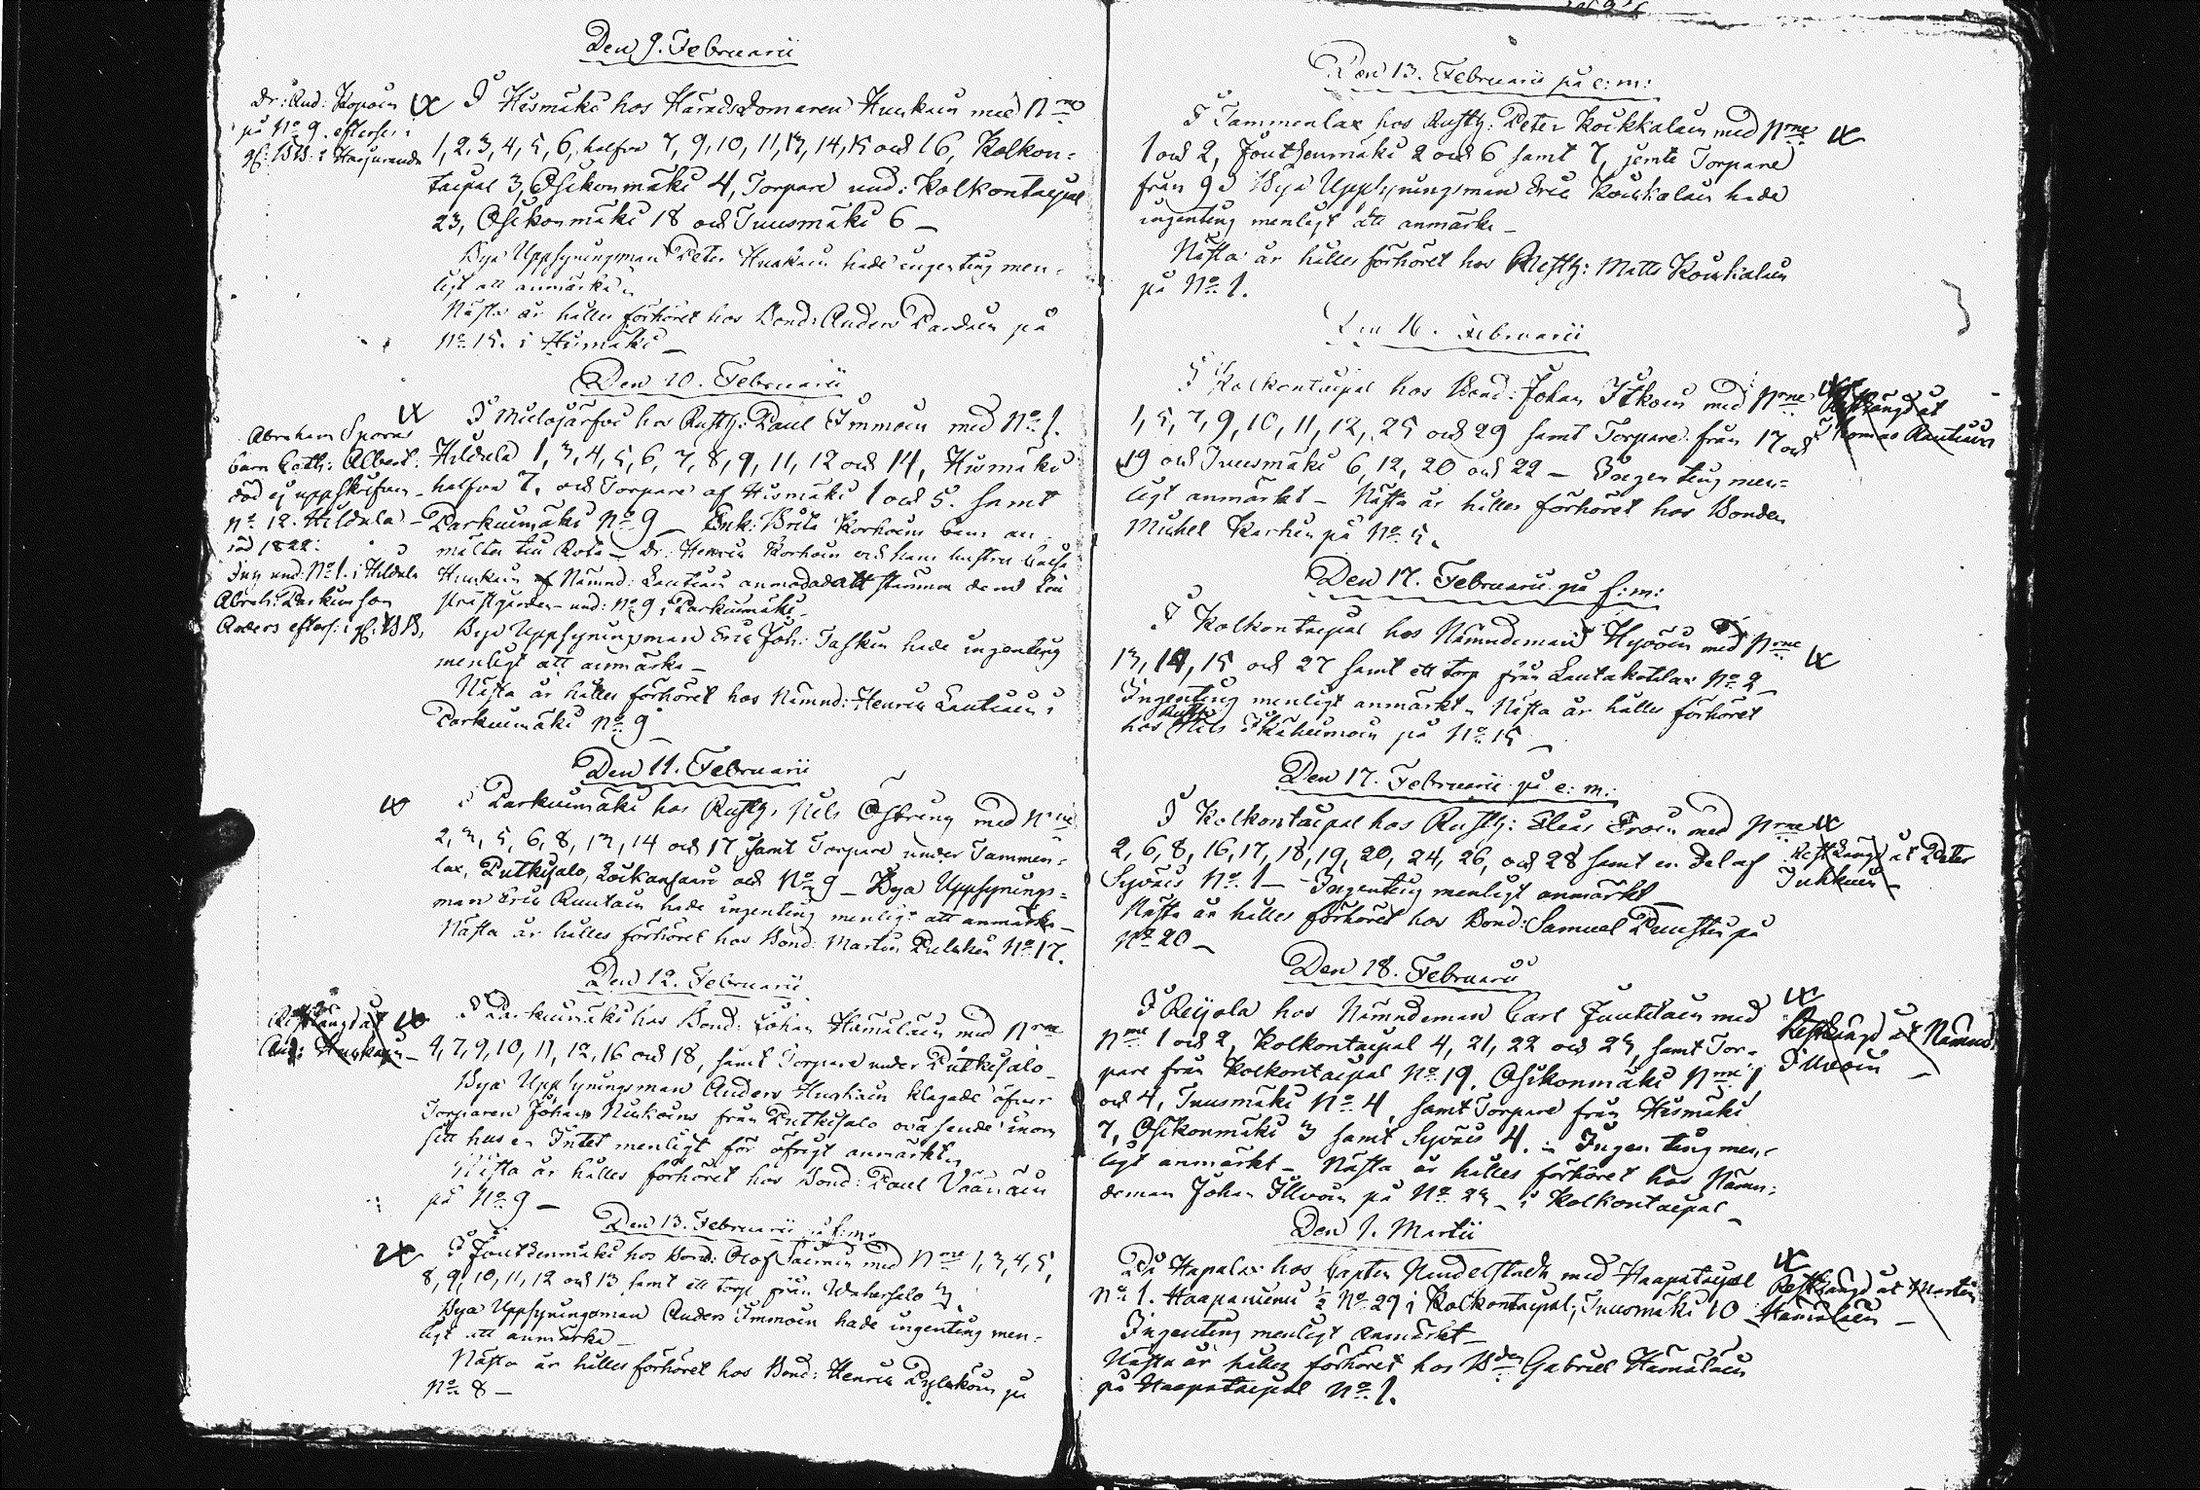 Den 9. Februarii
Dr: And: Kopoin
på No 9. efterses i
I Hismäki hos HäradsDomaren Huskain med Nrne
1, 2, 3, 4, 5, 6, halfva 7, 9, 10, 11, 13, 14, 15 och 16, Kolkon=
taipal 3, Osikonmäki 4, Torpare und: Kolkontaipal
23, Osikonmäki 18 och Tuusmäki 6 –
Bya Uppsyningsman Peter Huskain hade ingenting men=
ligt att anmärka.
Nästa år hålles förhöret hos Bond: Anders Pardain på
No 15. i Hismäki –
Den 10. Februarii
Abraham Sporas
barn Cath: Albert:
död ej uppskrifven –
No 12. Hildula –
död 1822:
Inh und: No 1. i Hildula
Abrah: Parkuins son
Anders efters: i
I Mielojärfvi hos Rusth: Paul Immoin med No 1.
Hildula 1, 3, 4, 5, 6, 7, 8, 9, 11, 12 och 14, Hismäki
halfva 7, och Torpare af Hismäki 1 och 5. samt
Parkuimäki No 9 – Enk: Brita Korhoins barn an=
mältes till Rota – Dr: Henric Korhoin och hans hustru
Huskain Nämnd: Lautiain anmodad att stämma
und: No 9 i Parkuimäki –
Bya Uppsyningsman Eric Joh: Taskin hade ingenting
menligt att anmärka –
Nästa år hålles förhöret hos Nämnd: Henric Lautiain i
Parkuimäki No 9 –
Den 11. Februarii
I Parkuimäki hos Rusth: Nils Östring med Nrne
2, 3, 5, 6, 8, 13, 14 och 17 samt Torpare under Tammen=
lax, Putkisalo, Loikansaari och No 9 – Bya Uppsynings=
man Eric Rautiain hade ingenting menligt att anmärka –
Nästa år hålles förhöret hos Bond: Martin Pulkkin No 17.
Den 12. Februarii
Restlängd åt
And: Huskain –
I Parkuimäki hos Bond: Johan Hämäläin med Nrne
4, 7, 9, 10, 11, 12, 16 och 18, samt Torpare under Putkisalo –
Bya Uppsyningsman Anders Huskain klagade öfver
Torparen Johan Niskoins från Putkisalo oväsende inom
sitt hus – Intet menligt för öfrigt anmärktes
Nästa år hålles förhöret hos Bond: Paul Väänäin
på No 9 –
Den 13. Februarii på f: m:
I Joutsenmäki hos Bond: Olof Saimin med Nrne 1, 3, 4, 5,
8, 9, 10, 11, 12 och 13 samt ett torp från Wahersalo 3.
Bya Uppsyningsman Anders Immoin hade ingenting men=
ligt att anmärka –
Nästa år hålles förhöret hos Bond: Henric Pylvköin på
No 8 –
Den 13. Februarii på e: m:
I Tammenlax hos Rusth: Peter Koikkalain med Nrne
1 och 2, Joutsenmäki 2 och 6 samt 7, jemte Torpare
från 9 – Bya Uppsyningsman Eric Koikkalain hade
ingenting menligt att anmärka –
Nästa år hålles förhöret hos Rusth: Matts Koikkalain
på No 1.
Den 16. Februarii
I Kolkontaipal hos Bond: Johan Itkoin med Nrne
1, 5, 7, 9, 10, 11, 12, 25 och 29 samt Torpare från 17 och
19 och Tuusmäki 6, 12, 20 och 22 – Ingenting men=
ligt anmärkt – Nästa år hålles förhöret hos Bonden
Michel Karhin på No 5.
Restlängd åt
Thomas Rautiain
Den 17. Februarii på f: m:
I Kolkontaipal hos Nämndeman Hyvöin med Nrne
13, 14, 15 och 27 samt ett torp från Lautakotilax No 2 –
Ingenting menligt anmärkt – Nästa år hålles förhöret
hos Rusth: Nils Ikäheimoin på No 15 –
Den 17. Februarii på e: m:
I Kolkontaipal hos Rusth: Elias Eroin med Nrne
2, 6, 8, 16, 17, 18, 19, 20, 24, 26, och 28 samt en del af
Syväis No 1 – Ingenting menligt anmärkt –
Nästa år hålles förhöret hos Bond: Samuel Paustin på
No 20 –
Restlängd åt Peter
Tuhkuin –
Den 18. Februarii
I Reijola hos Nämndeman Carl Juutilain med
Nrne 1 och 2, Kolkontaipal 4, 21, 22 och 23, samt Tor=
pare från Kolkontaipal No 19. Osikonmäki Nrne 1
och 4, Tuusmäki No 4, samt Torpare från Hismäki
7, Osikonmäki 3 samt Syväis 4. – Ingenting men=
ligt anmärkt – Nästa år hålles förhöret hos Nämn=
deman Johan Illvoin på No 23 – i Kolkontaipal –
Restlängd åt Nämnd:
Illvoin –
Den 1. Martii
På Hapala hos Capten Nindelstadt med Haapataipal
No 1. Haapaniemi ½ No 29 i Kolkontaipal, Tuusmäki 10
Ingenting menligt anmärkt –
Nästa år hålles förhöret hos Bden Gabriel Hämäläin
på Haapataipal No 1.
Restlängd åt Martin
Hämäläin –